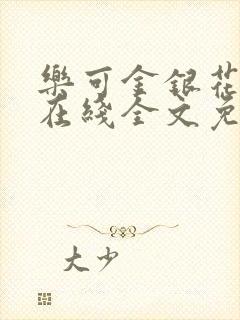 樂可金銀花
在綫全文免
大少